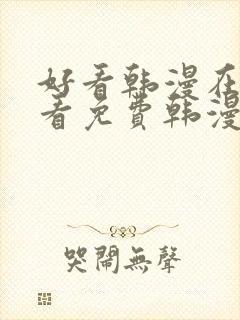 好看韩漫在
看免费韩漫
哭鬧無聲